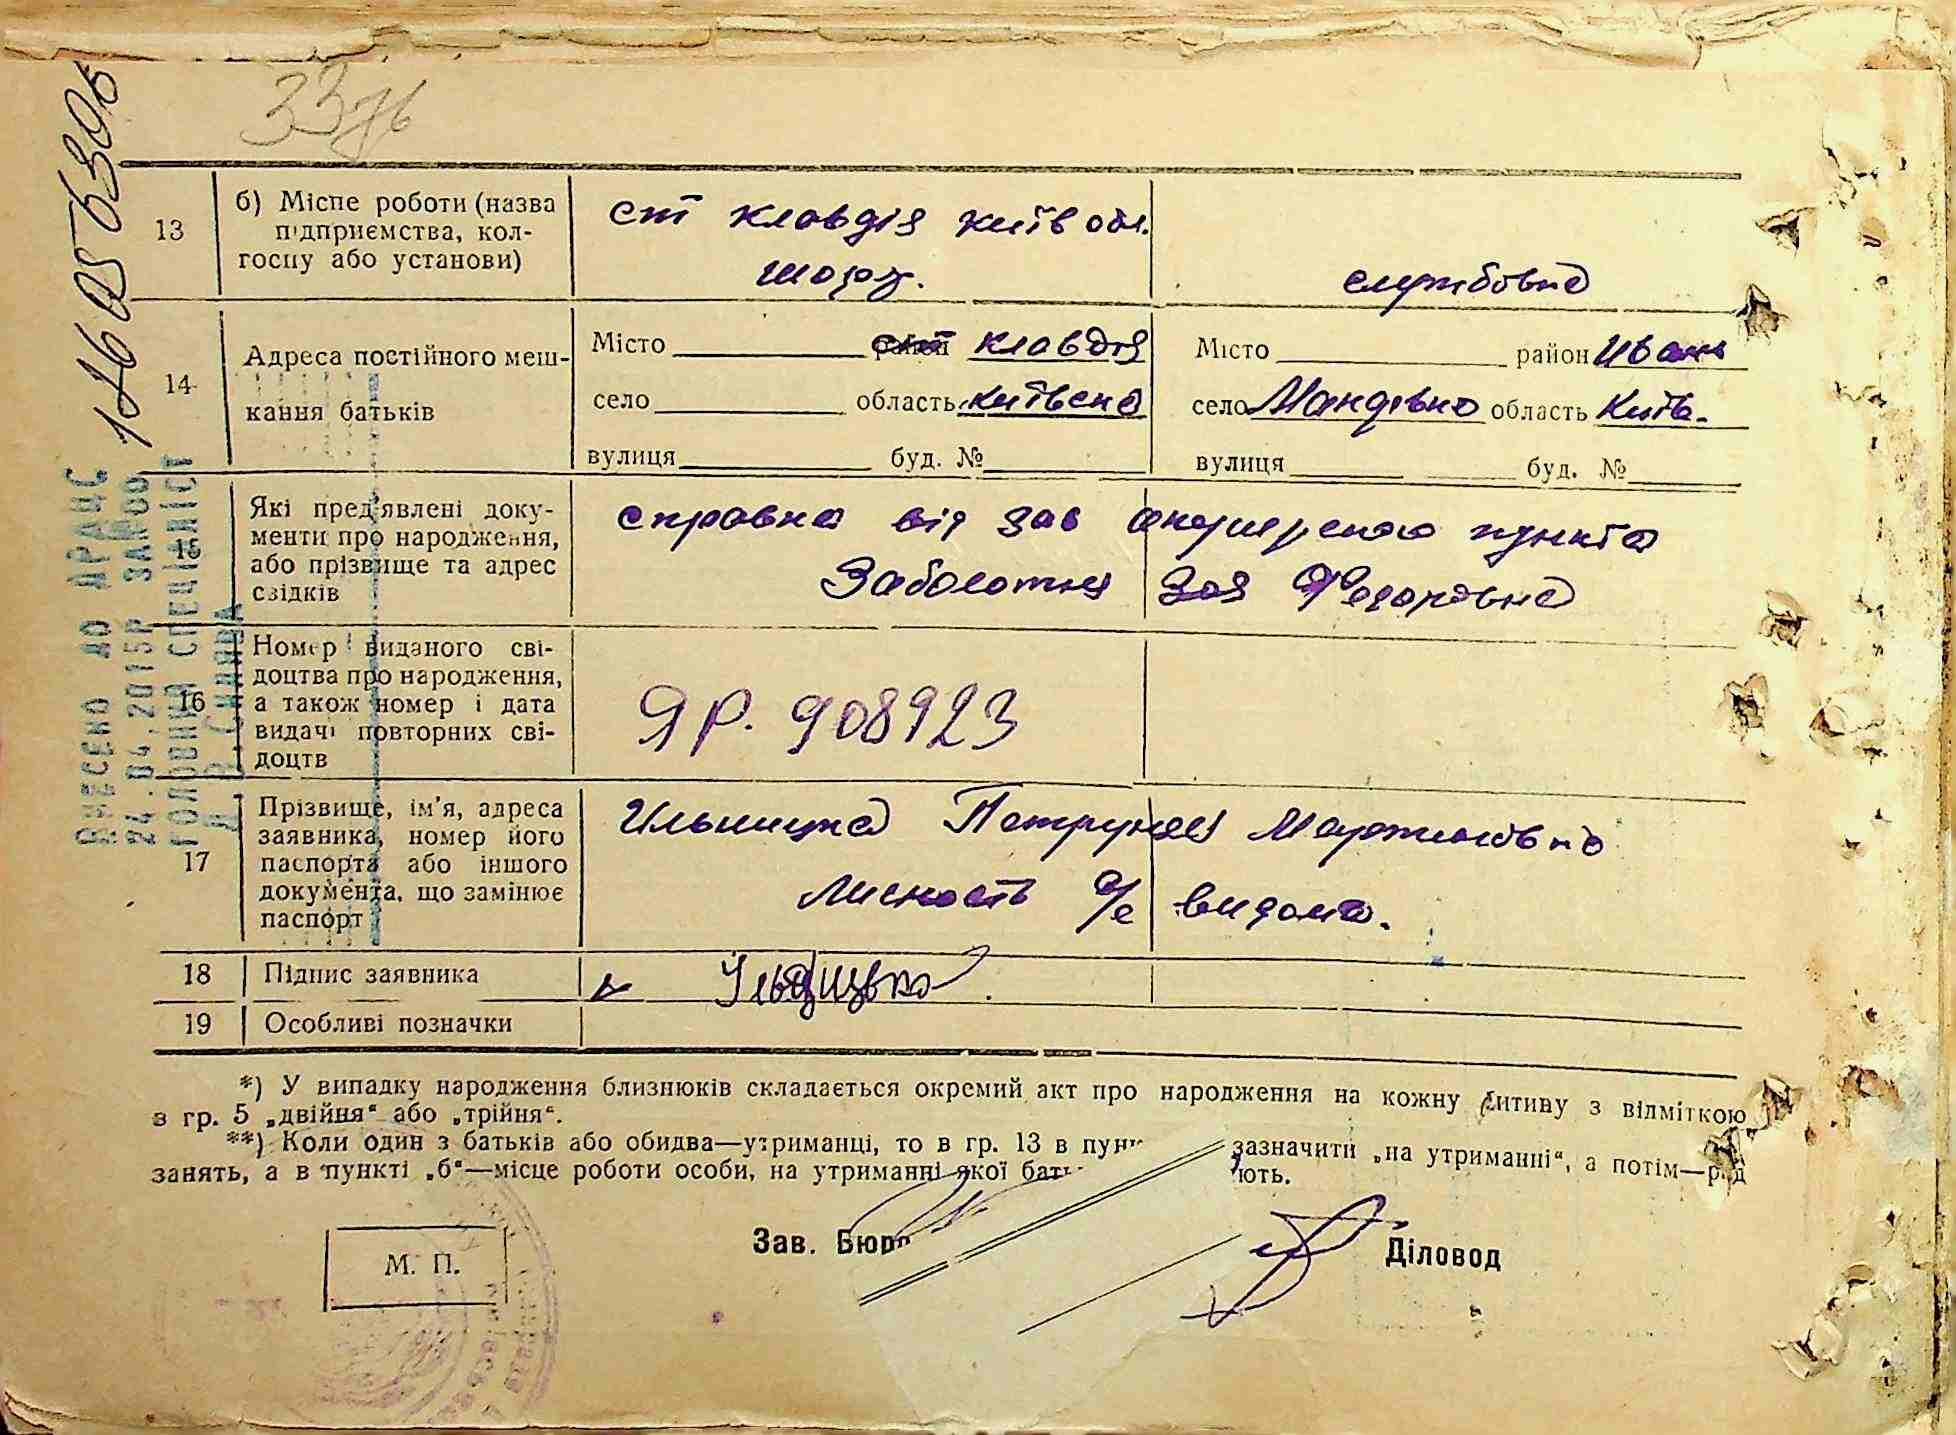 337б
1160563016
ВНЕСЕНО ДО ДРАЦС
24.04.2015Р ЗАМ000
ГОЛОВНИЙ СПЕЦІАЛІСТ
13
б) Місце роботи (назва
підприємства, кол-
госпу або установи)
ст Клавдія Київ обл.
шофер.
службовка
14
Адреса постійного меш-
кання батьків
Місто район Клавдія
село область Київська
вулиця буд. №
Місто район Иванк
село Мандівка область Київ.
вулиця буд. №
15
Які пред'явлені доку-
менти про народження,
або прізвище та адрес
свідків
справка від зав акушерского пункта
Заболотня Зоя Федоровна
16
Номер виданого сві-
доцтва про народження,
а також номер і дата
видачі повторних сві-
доцтв
ЯР. 908923
17
Прізвище, ім'я, адреса
заявника, номер його
паспорта або іншого
документа, що замінює
паспорт
Ильницка Петрунея Мартиновна
Лисность видома.
18
Підпис заявника
Ільницька
19
Особливі позначки
*) У випадку народження близнюків складається окремий акт про народження на кожну дитину з відміткою
в гр. 5 „двійня“ або „трійня“.
**) Коли один з батьків або обидва—утриманці, то в гр. 13 в пунк зазначити „на утриманні“, а потім—рід
занять, а в пункті „б“—місце роботи особи, на утриманні якої бать ють.
Зав. Бюро
Діловод
М. П.